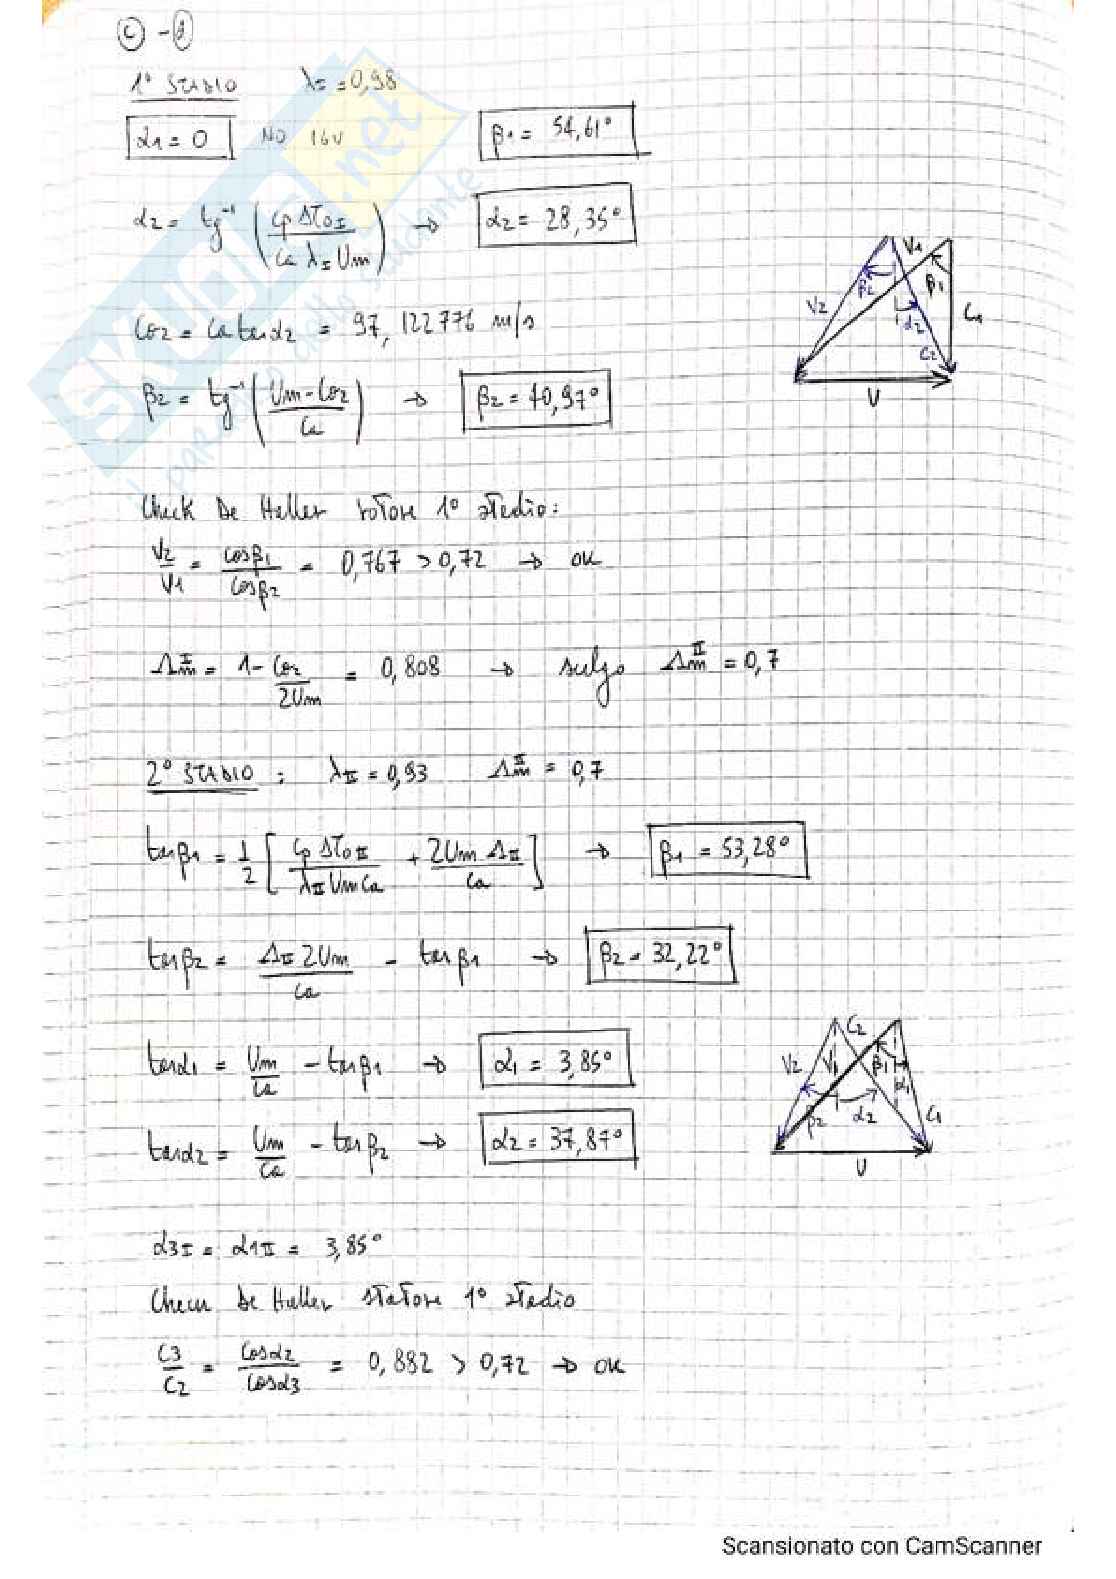 ⓒ - ⓓ
1° STADIO λI = 0,98
α1 = 0 NO IGV β1 = 54,61°
α2 = tg⁻¹ (cp ΔT0I / Ca λI Um) → α2 = 28,35°
Cθ2 = Ca tanα2 = 97,122776 m/s
β2 = tg⁻¹ (Um - Cθ2 / Ca) → β2 = 40,97°
β2 V2 V1 β1 α2 C2 C1 U
Check De Haller rotore 1° stadio:
V2/V1 = cosβ1/cosβ2 = 0,767 > 0,72 → OK
ΛmI = 1 - Cθ2/2Um = 0,808 → scelgo ΛmII = 0,7
2° STADIO : λII = 0,93 ΛmII = 0,7
tanβ1 = 1/2 [cp ΔT0II / λII Um Ca + 2Um ΛII / Ca] → β1 = 53,28°
tanβ2 = ΛII 2Um / Ca - tanβ1 → β2 = 32,22°
tanα1 = Um/Ca - tanβ1 → α1 = 3,85°
tanα2 = Um/Ca - tanβ2 → α2 = 37,87°
C2 V2 V1 β1 α1 β2 α2 C1 U
α3I = α1II = 3,85°
Check De Haller statore 1° stadio
C3/C2 = cosα2/cosα3 = 0,882 > 0,72 → OK
SKUOLA.net
Scansionato con CamScanner